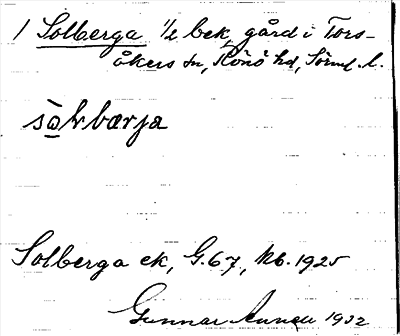 1 Solberga 1/2 bek, gård i Tors-
åkers sn, Rönö hd, Sörml. l.
Solberga ek, G.67, Kb. 1925
Gunnar 1932